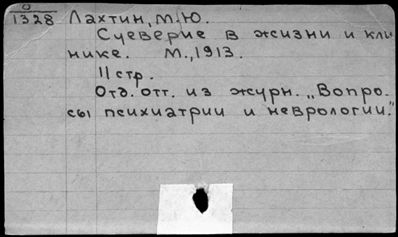 О
1328 Лахтин, М.Ю.
Суеверие в жизни и кли-
нике. М., 1913.
11 стр.
Отд. отт. из журн. „Вопро-
сы психиатрии и неврологии."